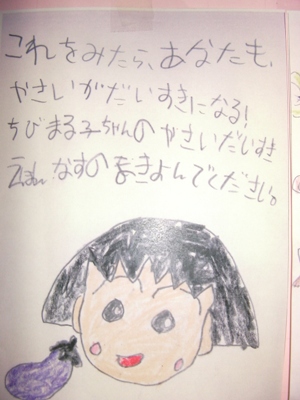 これをみたら、あなたも、
やさいがだいすきになる!
ちびまる子ちゃんのやさいだいすき
えほん なすのまきよんでください。